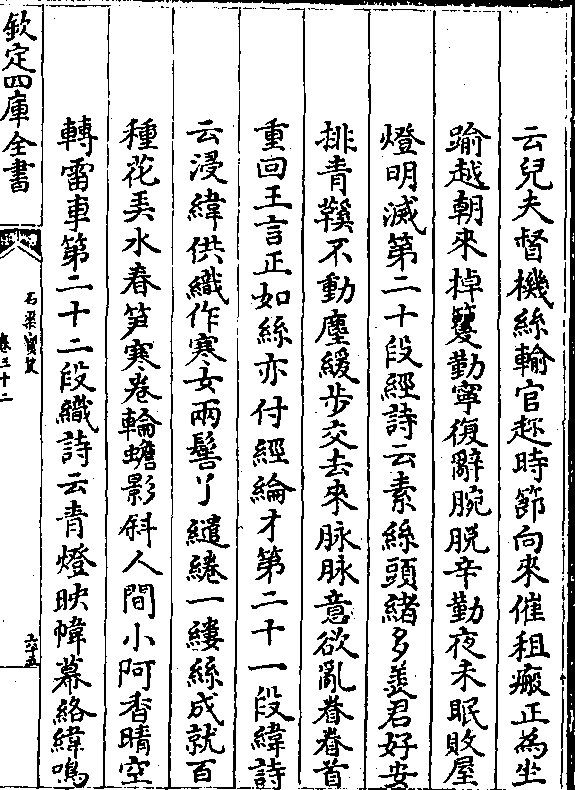 云兒夫督機絲輸官趂時節向來催租瘢正為坐
踰越朝來掉籰勤寧復辭腕脱辛勤夜未眠敗屋
燈明滅第二十段經詩云素絲頭緒多羨君好安
排青鞵不動塵緩歩交去來脉脉意欲亂眷眷首
重回王言正如絲亦付經綸才第二十一段緯詩
云浸緯供織作寒女兩髻丫繾綣一縷絲成就百
種花弄水春笋寒卷輪蟾影斜人間小阿香晴空
轉雷車第二十二段織詩云青燈映幃幕絡緯鳴
欽定四庫全書
石渠寶笈
卷三十二